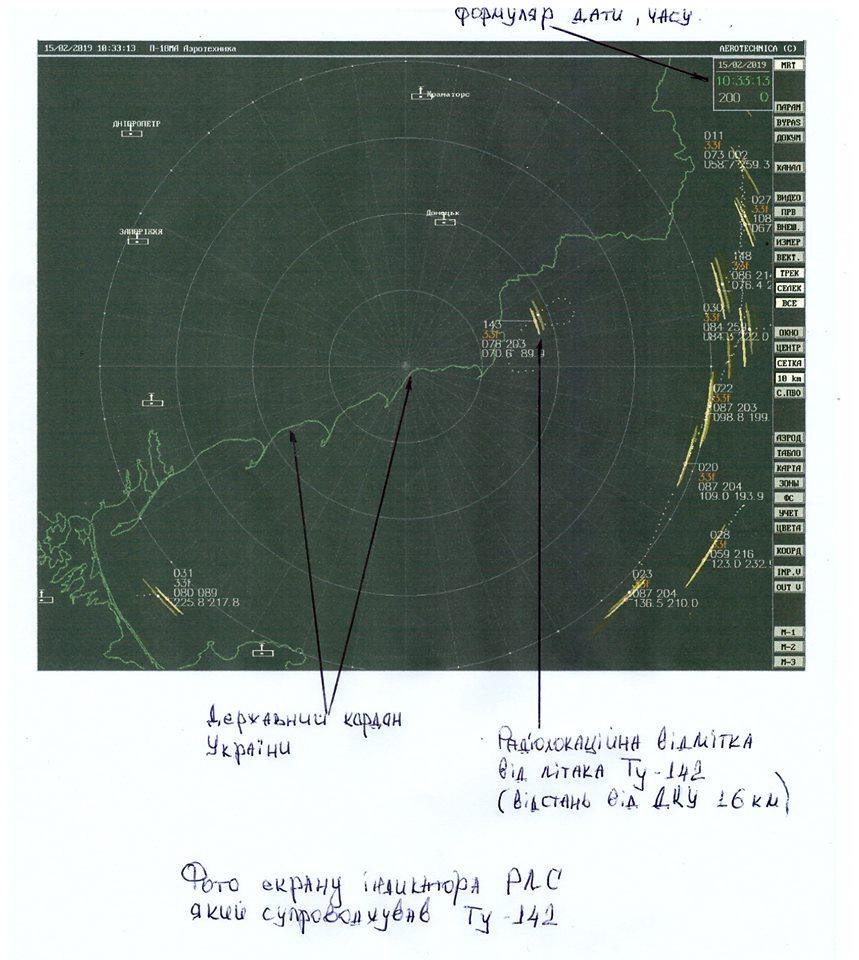 формуляр дати, часу
15/02/2019 10:33:13 П-18МА Аэротехника
AEROTECHNICA (C)
15/02/2019
10:33:13
200 0
MRT
ПАРАМ
BYPAS
ДОКУМ
КАНАЛ
ВИДЕО
ПРВ
ВНЕШ.
ИЗМЕР
ВЕКТ.
ТРЕК
СЕЛЕК
ВСЕ
ОКНО
ЦЕНТР
СЕТКА
10 km
С.ПВО
АЭРОД
ТАБЛО
КАРТА
ЗОНЫ
ФС
УЧЕТ
ЦВЕТА
КООРД
IMP.V
OUT V
М-1
М-2
М-3
Краматорс
ДНІПРОПЕТР
Донецьк
ЗАПОРІЖЖЯ
011
33f
073 002
058.7 259.3
027
33f
108
067
33f
086 21
076.4 2
030
33f
143
33f
078 203
070.6 89.9
022
33f
087 203
098.8 199.
020
33f
087 204
109.0 193.9
028
33f
059 216
123.0 232.
023
33f
087 204
136.5 210.0
031
33f
080 089
225.8 217.8
Державний кордон
України
Радіолокаційна відмітка
від літака Ту-142
(відстань від ДКУ 16 км)
Фото екрану індикатора РЛС
який супроводжував Ту-142